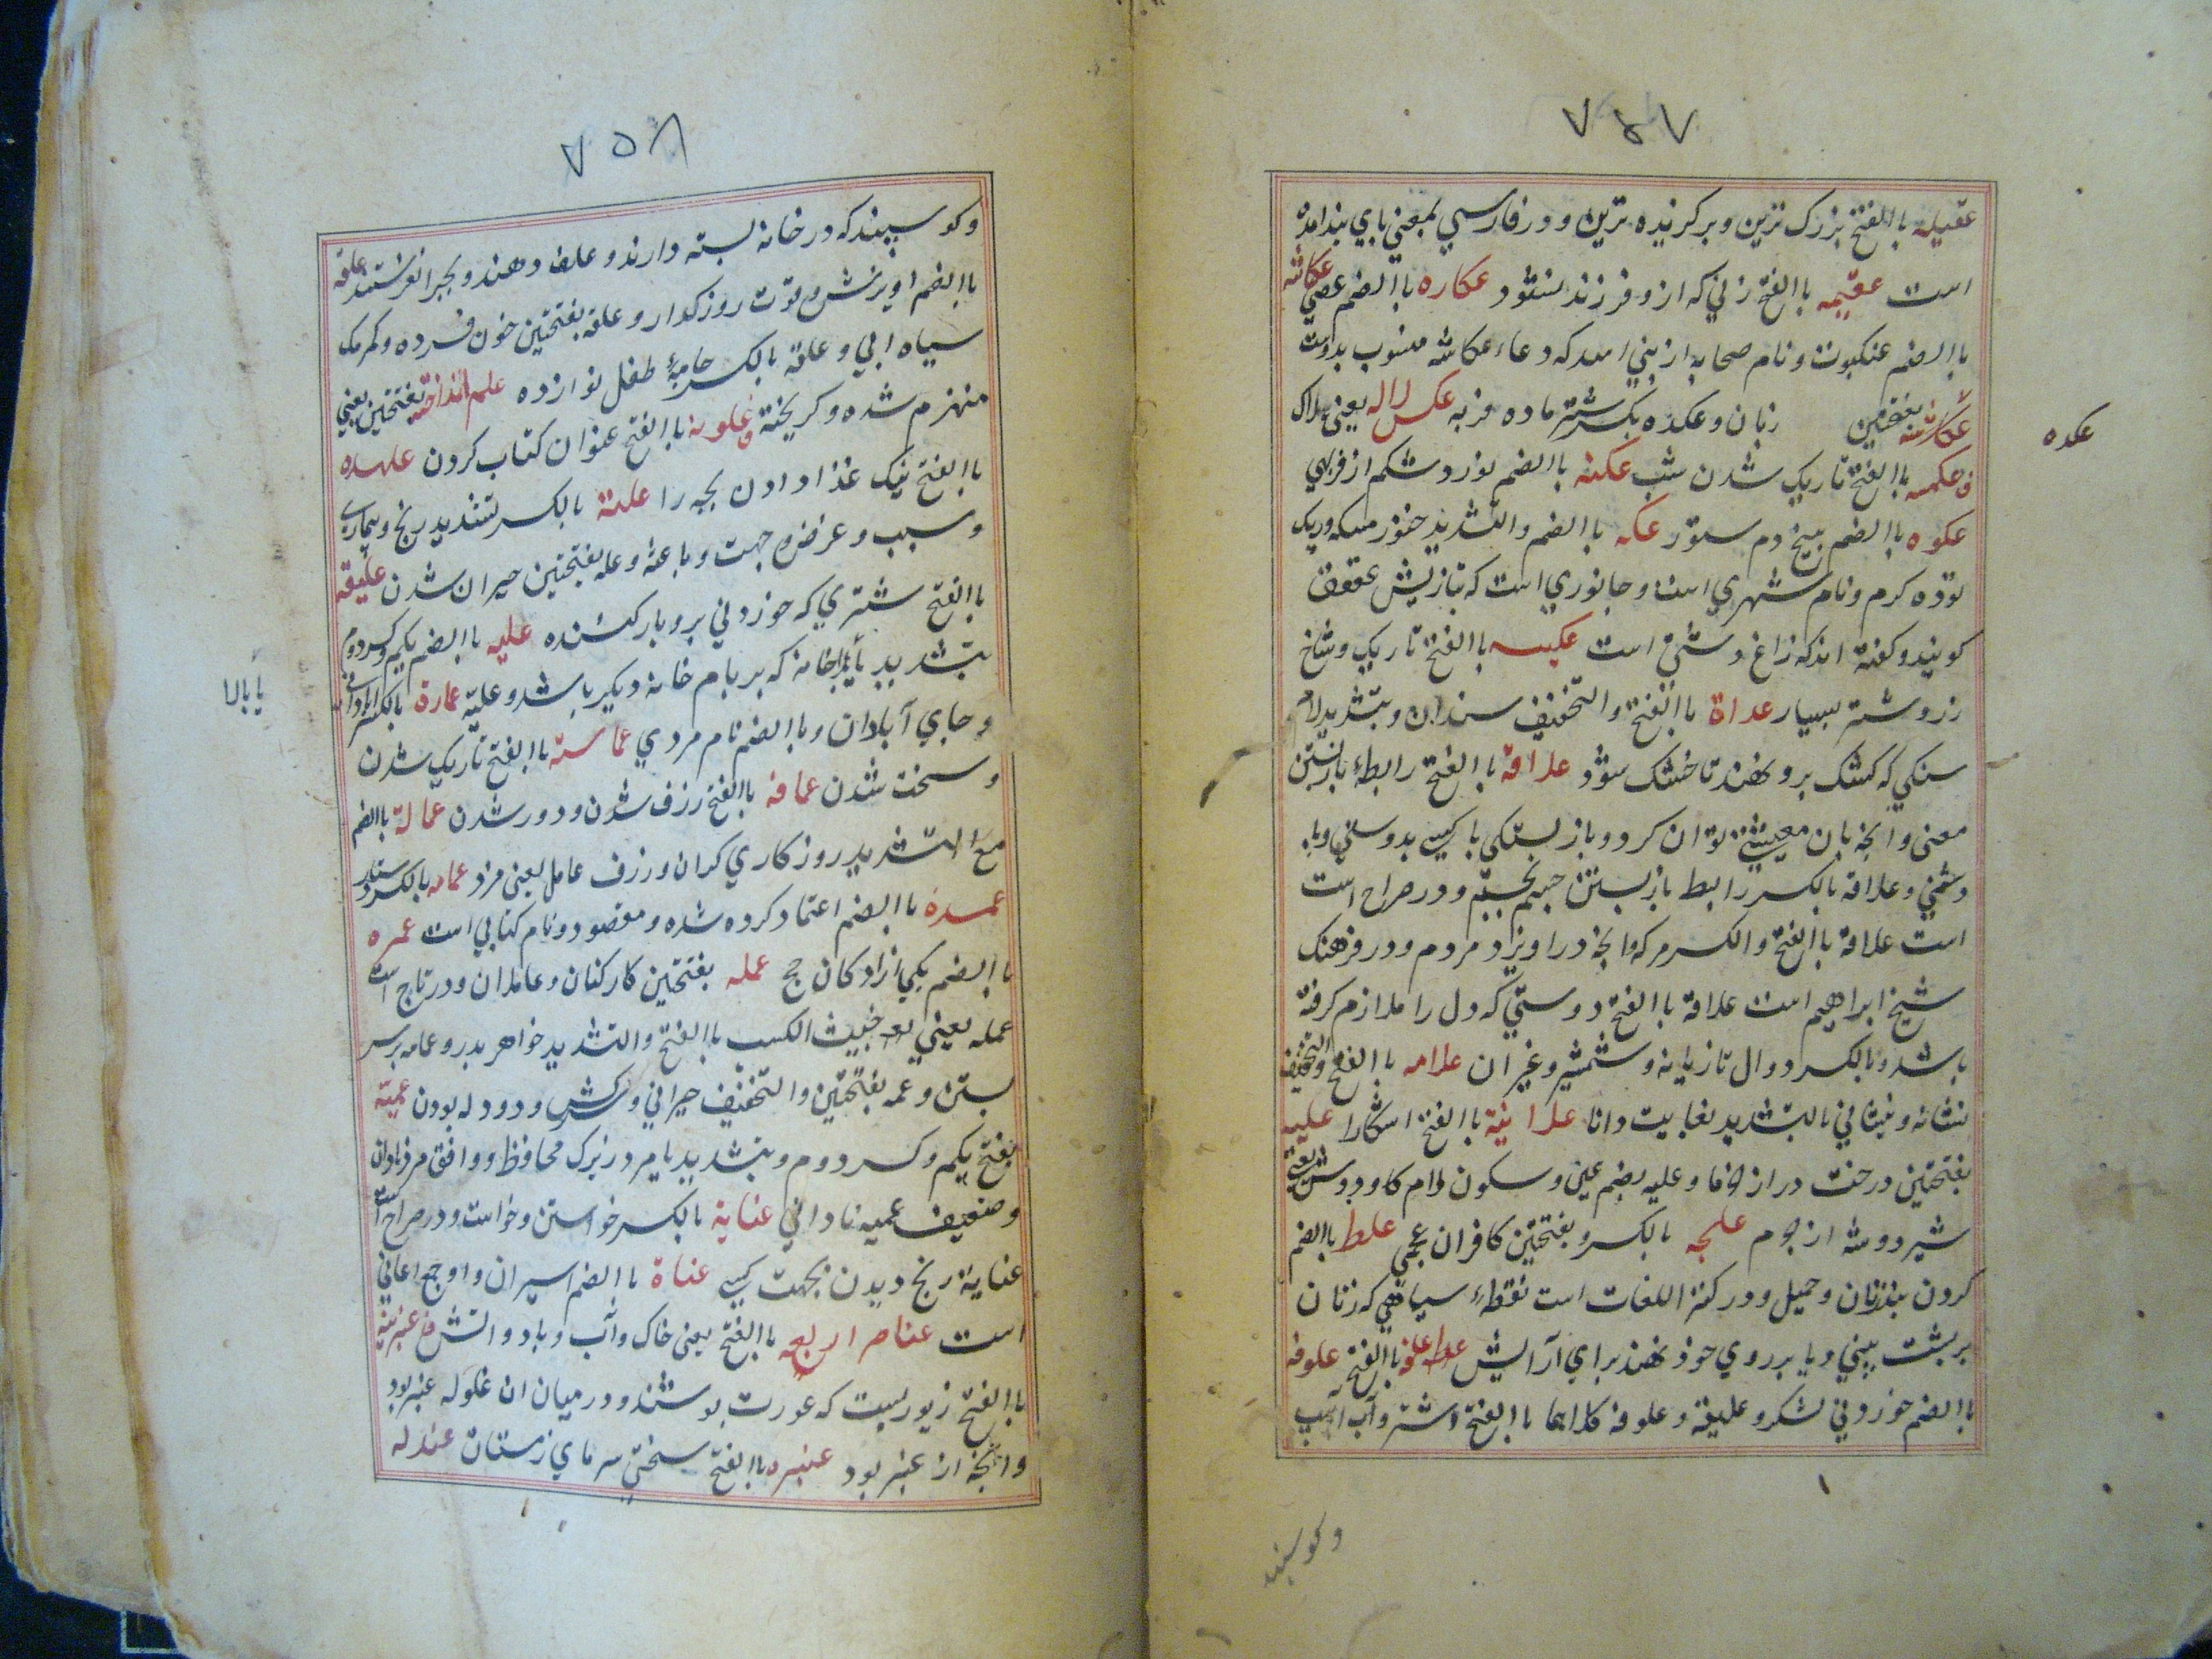 ۷۵۷
عقیله باالفتح بزرک ترین و برکزیده ترین و در فارسی بمعنی پای بند امده
است عقیمه باالفتح زنی که ازو فرزند نشود عکاره باالضم عصی عکاشه
باالضم عنکبوت و نام صحابه از بنی اسد که دعاء عکاشه منسوب بدوست
بفتحتین زبان و عکده بکسر شتر ماده فربه عکس لاله یعنی
عکده
عکمسه باالفتح تاریک شدن شب عکنه باالضم نورد شکم از فربهی
عکوه باالضم بیخ دم ستور عکه باالضم والتشدید خنور مسکه و ریک
توده کرم و نام شهری است و جانوری است که بتازیش عقعق
کویند و کفته اند که زاغ دشتی است عکیسه باالفتح تاریک و شاخ
رز و شتر بسیار علاة باالفتح والتخفیف سندان و بتشدید لام
سنکی که کشک برو نهند تا خشک شود علاقة باالفتح رابطۀ بازبستن
معنی و انچه بان معیشتی توان کرد و باز بستکی با کسی بدوستی و یا
دشمنی و علاقه بالکسر رابط باز بستن جسم بجسم و در صراح است
است علاقه باالفتح والکسر مرکه وانچه دراویزد مردم و در فرهنک
شیخ ابراهیم است علاقه باالفتح دوستی که دل را ملازم کرفته
باشد و بالکسر دوال تازیانه و شمشیر و غیر ان علامه باالفتح والتخفیف
نشانه و نشانی بالتشدید بغایت دانا علانیة باالفتح اشکارا علبه
بفتحتین درخت دراز خرما و علبه بضم عین و سکون لام کاو دوش یعنی
شیر دوشه از چرم علجه بالکسر و بفتحتین کافران عجمی علطه باالضم
کردن بند زنان و حمیل و در کنز اللغات است نقطهء سیاهی که زنان
بر پشت بینی و یا بر روی خود نهند برای آرایش باالفتح علوفه
باالضم خوردنی لشکر و علیقه و علوفه کلاهما باالفتح اشتر و اسب
و کوسپند
۷۵۸
و کوسپند که در خانه بسته دارند و علف دهند و بچرا نفرستند علقه
باالضم اویزش و قوت روز کدار و علقه بفتحتین خون فسرده و کرمک
سیاه ابی و علقه بالکسر جامۀ طفل نوازده علم انداخته بفتحتین یعنی
منهزم شده و کریخته علونه باالفتح عنوان کتاب کردن علهده
باالفتح نیک غذا دادن بچه را علة بالکسر تشدید رنج و بیماری
و سبب و عرض و جهت و باعث و عله بفتحتین حیران شدن علیقه
باالفتح شتری که خوردنی برو بار کنند علیه باالضم یکم و کسر دوم
بتشدید یأ بالاخانه که بر بام خانه دیکر باشد و علیّه عمارة بالکسر ابادانی
یأ بالا
و جای آبادان و باالضم نام مردی عماسه باالفتح تاریک شدن
و سخت شدن عماقه باالفتح ژرف شدن و دور شدن عمالة باالضم
مع التشدید روز کاری کران و رزف عامل یعنی مزد عمامه بالکسر دستار
عمده باالضم اعتماد کرده شده و مقصود و نام کتابی است عمره
باالضم یکی از ارکان حج عمله بفتحتین کارکنان و عاملان و در تاج است
عمله یعنی بعد خبیث الکسب باالفتح والتشدید خواهر پدر و عمامه بر سر
بستن و عمه بفتحتین والتخفیف حیرانی و سرکشی و دو دله بودن عمیّه
بفتح یکم و کسر دوم و بتشدید یا مرد بزرک محافظ و واقف مردمان
و ضعیف عمیه نادانی عنایة بالکسر خواستن و خواست و در صراح است
عنایة رنج دیدن بجهت کسی عناة باالضم اسیران واو جمع اعانی
است عناصر اربعه باالفتح یعنی خاک و آب و باد و اتش عنبرینه
باالفتح زیوریست که عورت پوشند و در میان ان غلوله عنبر بود
وانچه از عنبر بود عنبره باالفتح سختی سرمای زمستان عندله